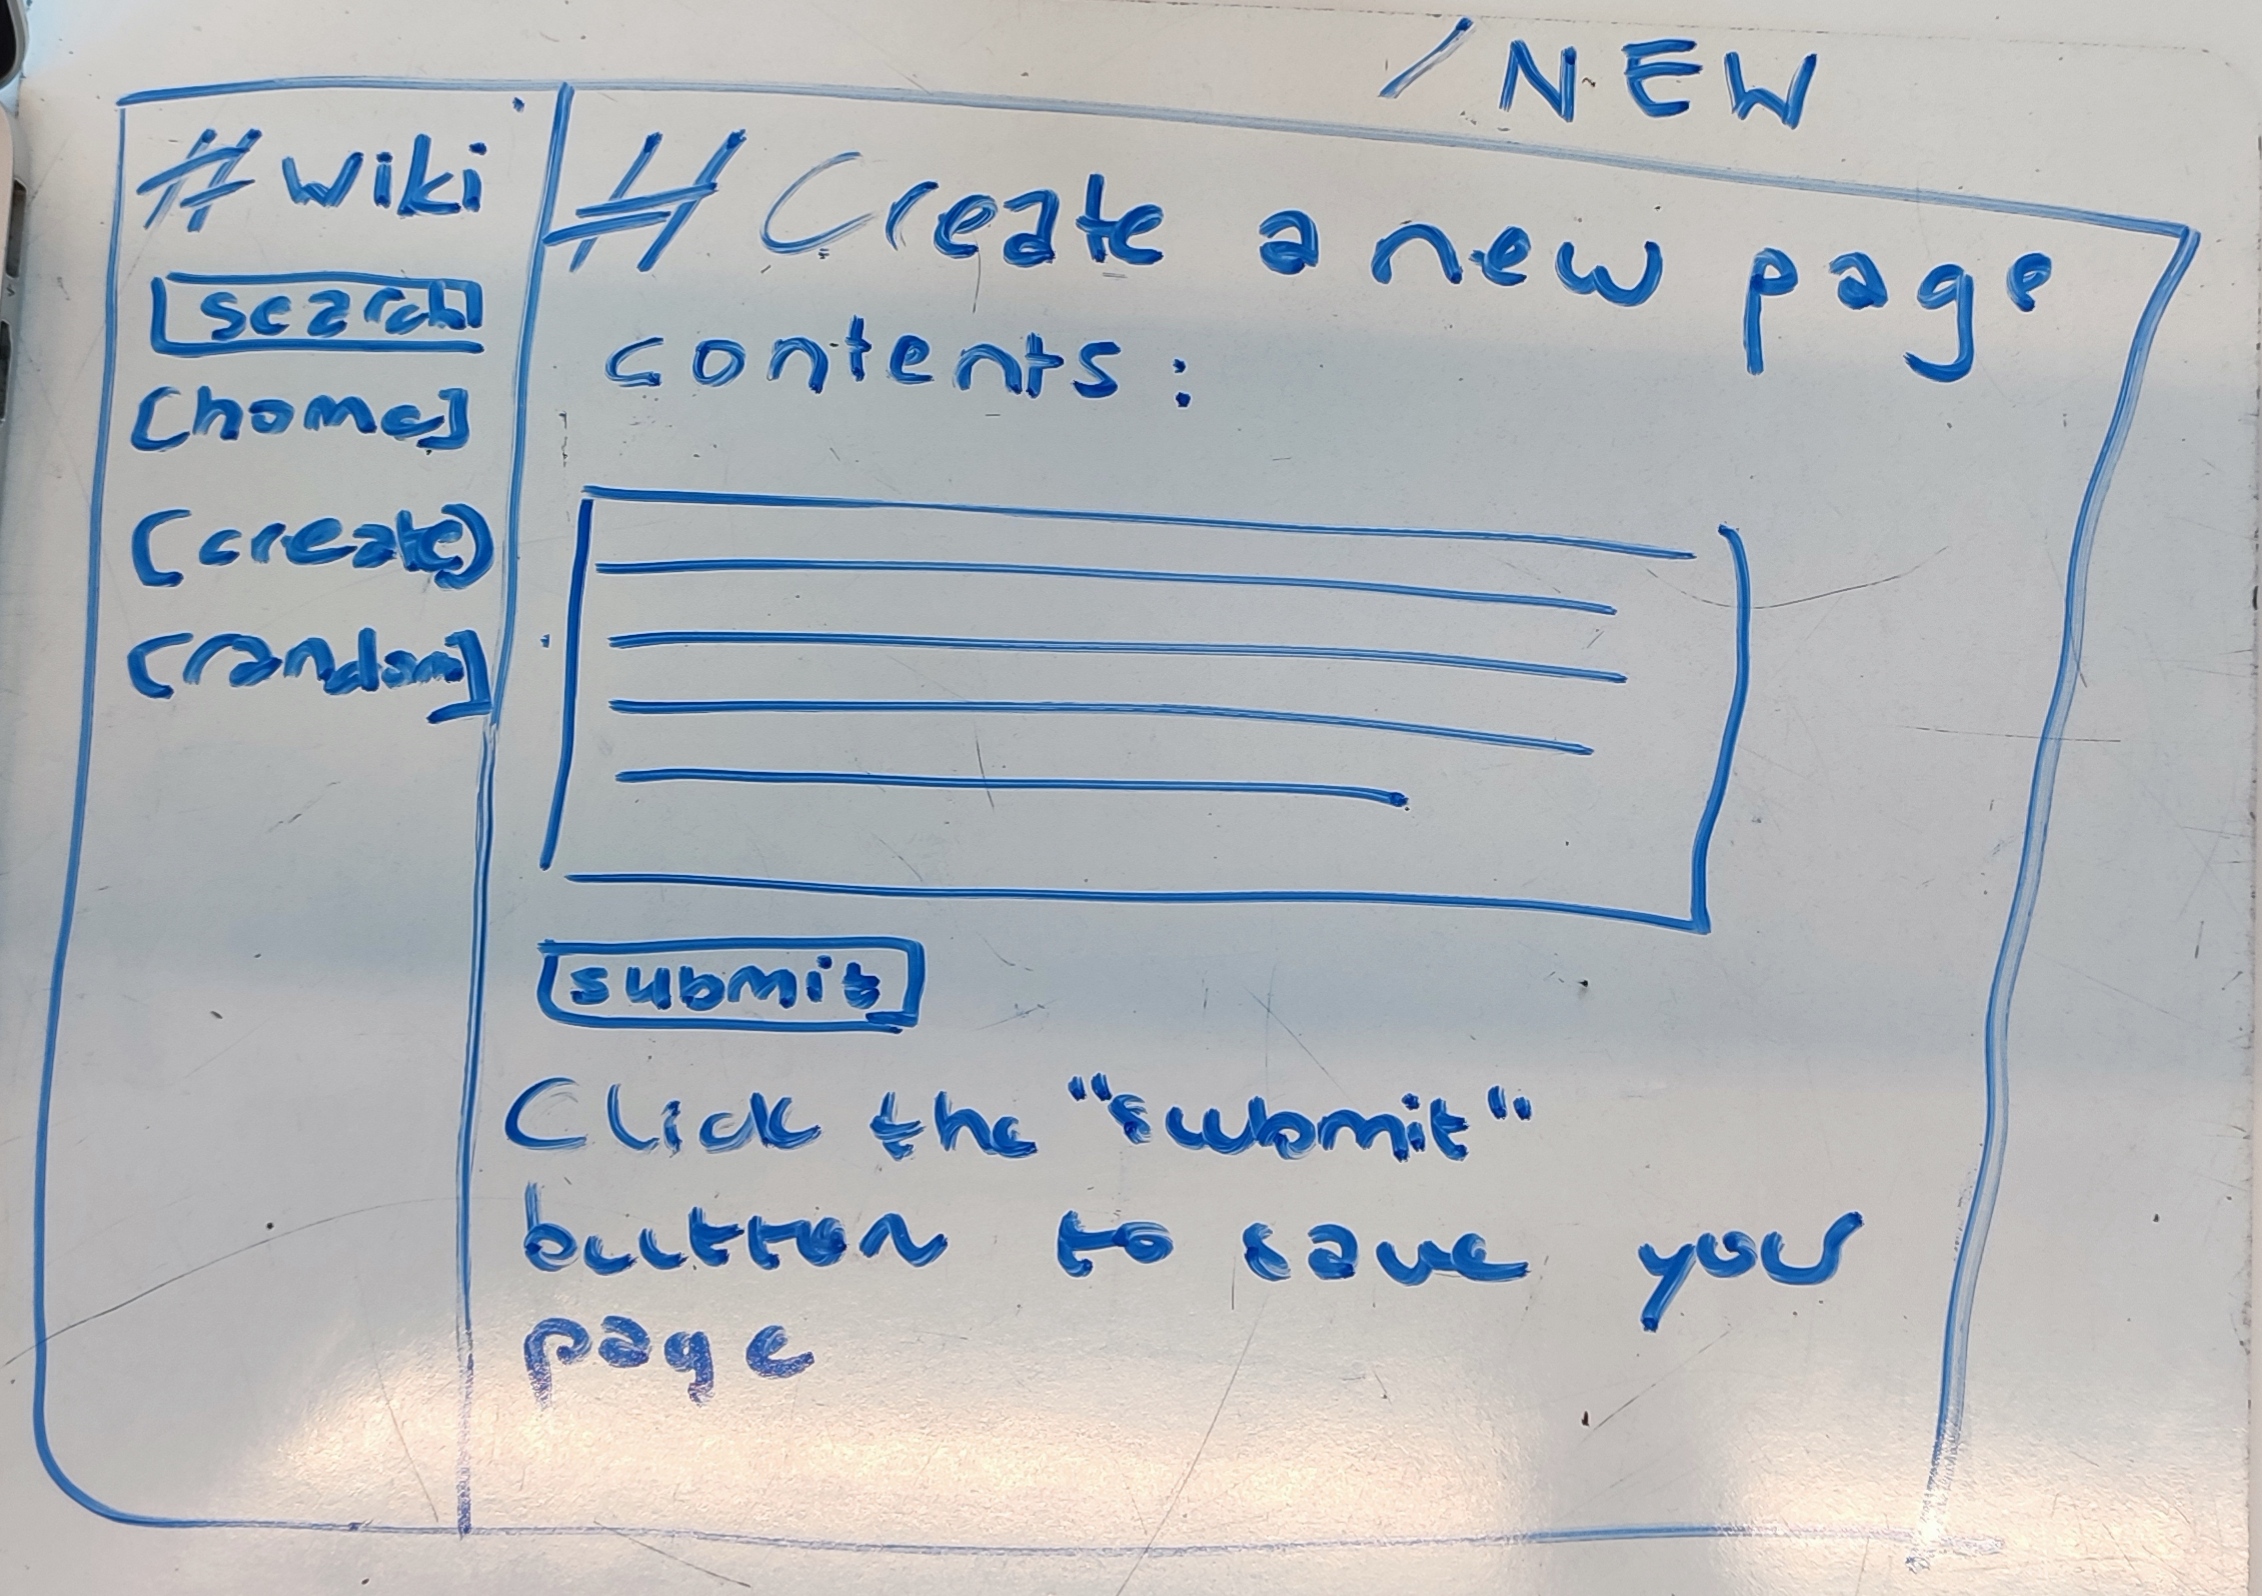 /NEW
# wiki
search
[home]
(create)
[random]
# Create a new page
contents:
submit
Click the "submit"
button to save your
page